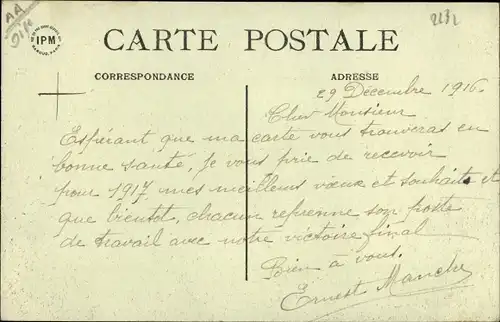 AA
2132
IPM
CARTE POSTALE
CORRESPONDANCE
ADRESSE
29 Décembre 1916.
Cher Monsieur
Espérant que ma carte vous trouveras en
bonne santé, je vous prie de recevoir
pour 1917 mes meilleurs vœux et souhaits et
que bientôt, chacun reprenne son poste
de travail avec notre victoire final
Bien à vous.
Ernest Manche